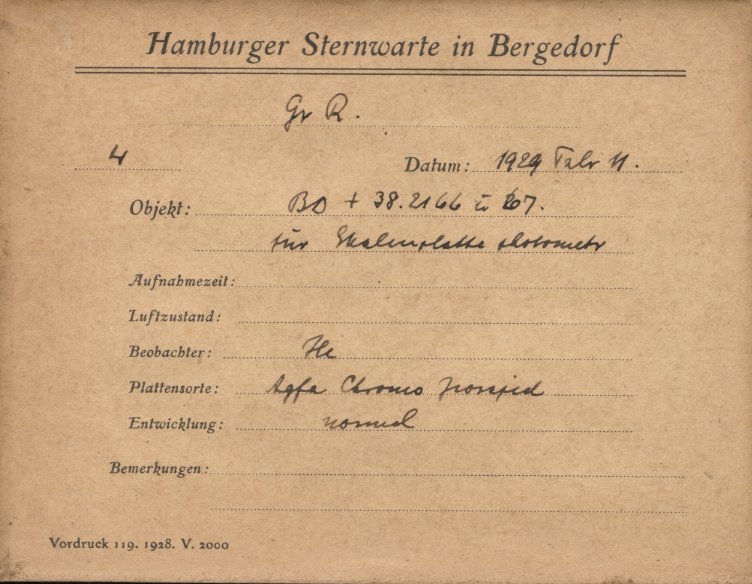 Hamburger Sternwarte in Bergedorf
Gr R.
4 Datum: 1929 Febr 11.
Objekt: BD + 38.2166 u 67.
für Skalenplatte photometr
Aufnahmezeit:
Luftzustand:
Beobachter: He
Plattensorte: Agfa Chromo Isorapid
Entwicklung: normal
Bemerkungen:
Vordruck 119. 1928. V. 2000